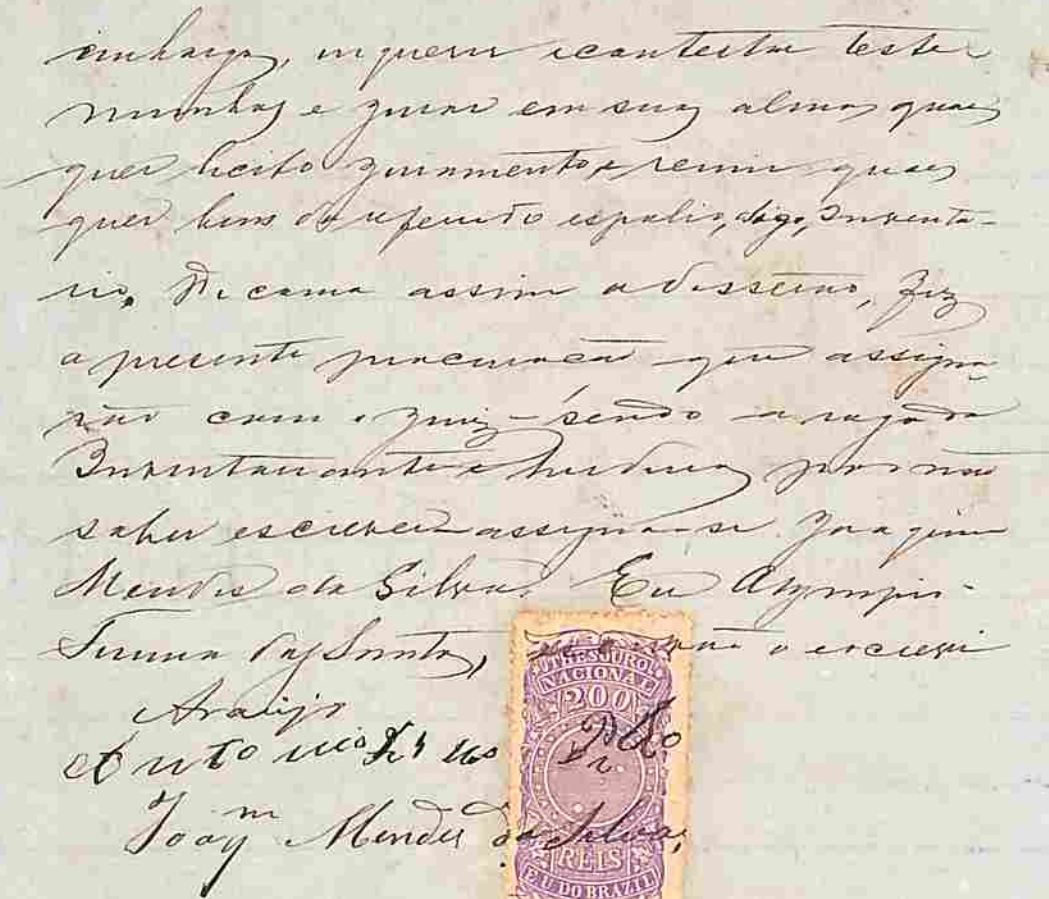 embargos, inquerir e contestar teste
munhas e jurar em suas almas quaes
quer licito juramento, e remir quaes
quer bens do referido espolio, digo, Inventa-
rio. De como assim o disserão, fiz
a presente procuração que assigna-
rão com o juiz sendo a rogo da
Inventariante e herdeiras por não
saber escrever assigna-se Joaquim
Mendes da Silva. Eu Olympio
dos Santos, escrivão o escrevi
Araujo
Antonio
Joaqm Mendes da Silva,
THESOURO
NACIONAL
200
REIS
E U DO BRAZIL